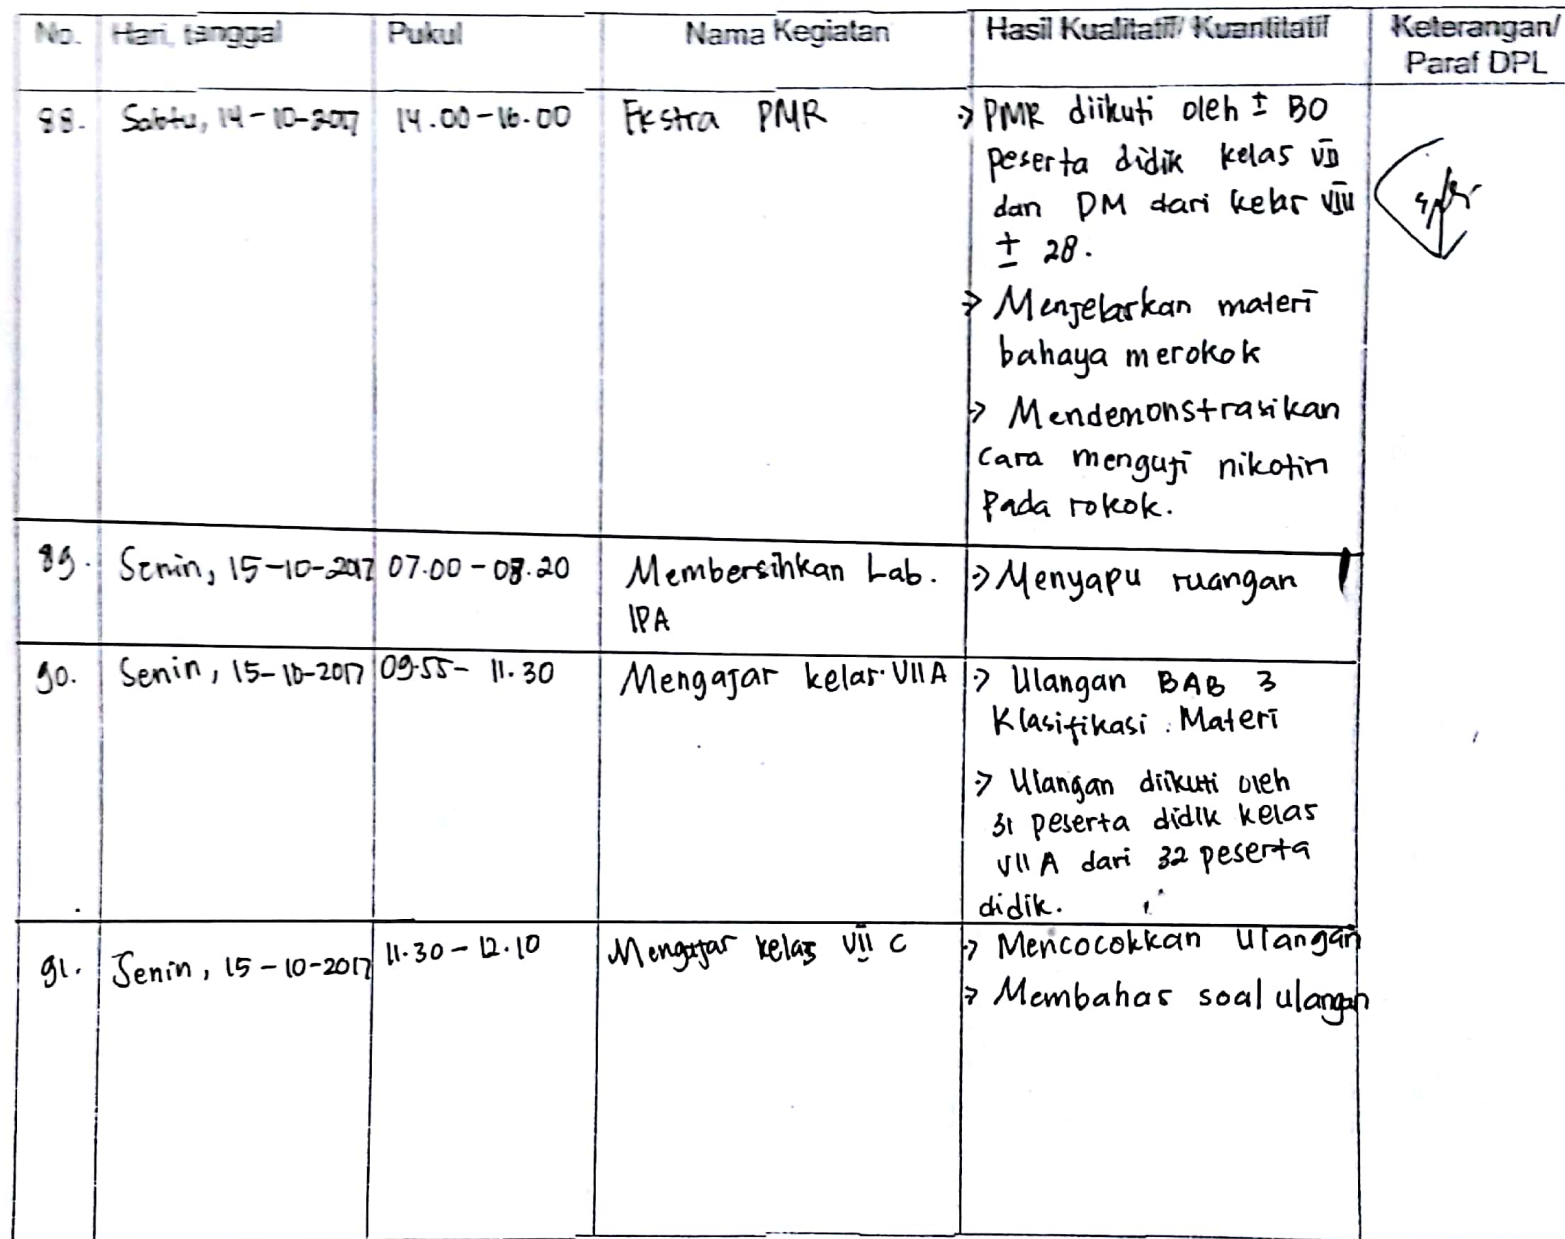 No. Hari, tanggal Pukul Nama Kegiatan Hasil Kualitatif/ Kuantitatif Keterangan/
Paraf DPL
88. Sabtu, 14-10-2017 14.00-16.00 Ekstra PMR -> PMR diikuti oleh ± 80
peserta didik kelas VII
dan DM dari kelas VIII
± 28.
-> Menjelaskan materi
bahaya merokok
-> Mendemonstrasikan
cara menguji nikotin
pada rokok.
89. Senin, 15-10-2017 07.00-08.20 Membersihkan Lab. -> Menyapu ruangan
IPA
90. Senin, 15-10-2017 09.55- 11.30 Mengajar kelas VIIA -> Ulangan BAB 3
Klasifikasi Materi
-> Ulangan diikuti oleh
31 peserta didik kelas
VII A dari 32 peserta
didik.
91. Senin, 15-10-2017 11.30-12.10 Mengajar kelas VII C -> Mencocokkan Ulangan
-> Membahas soal ulangan